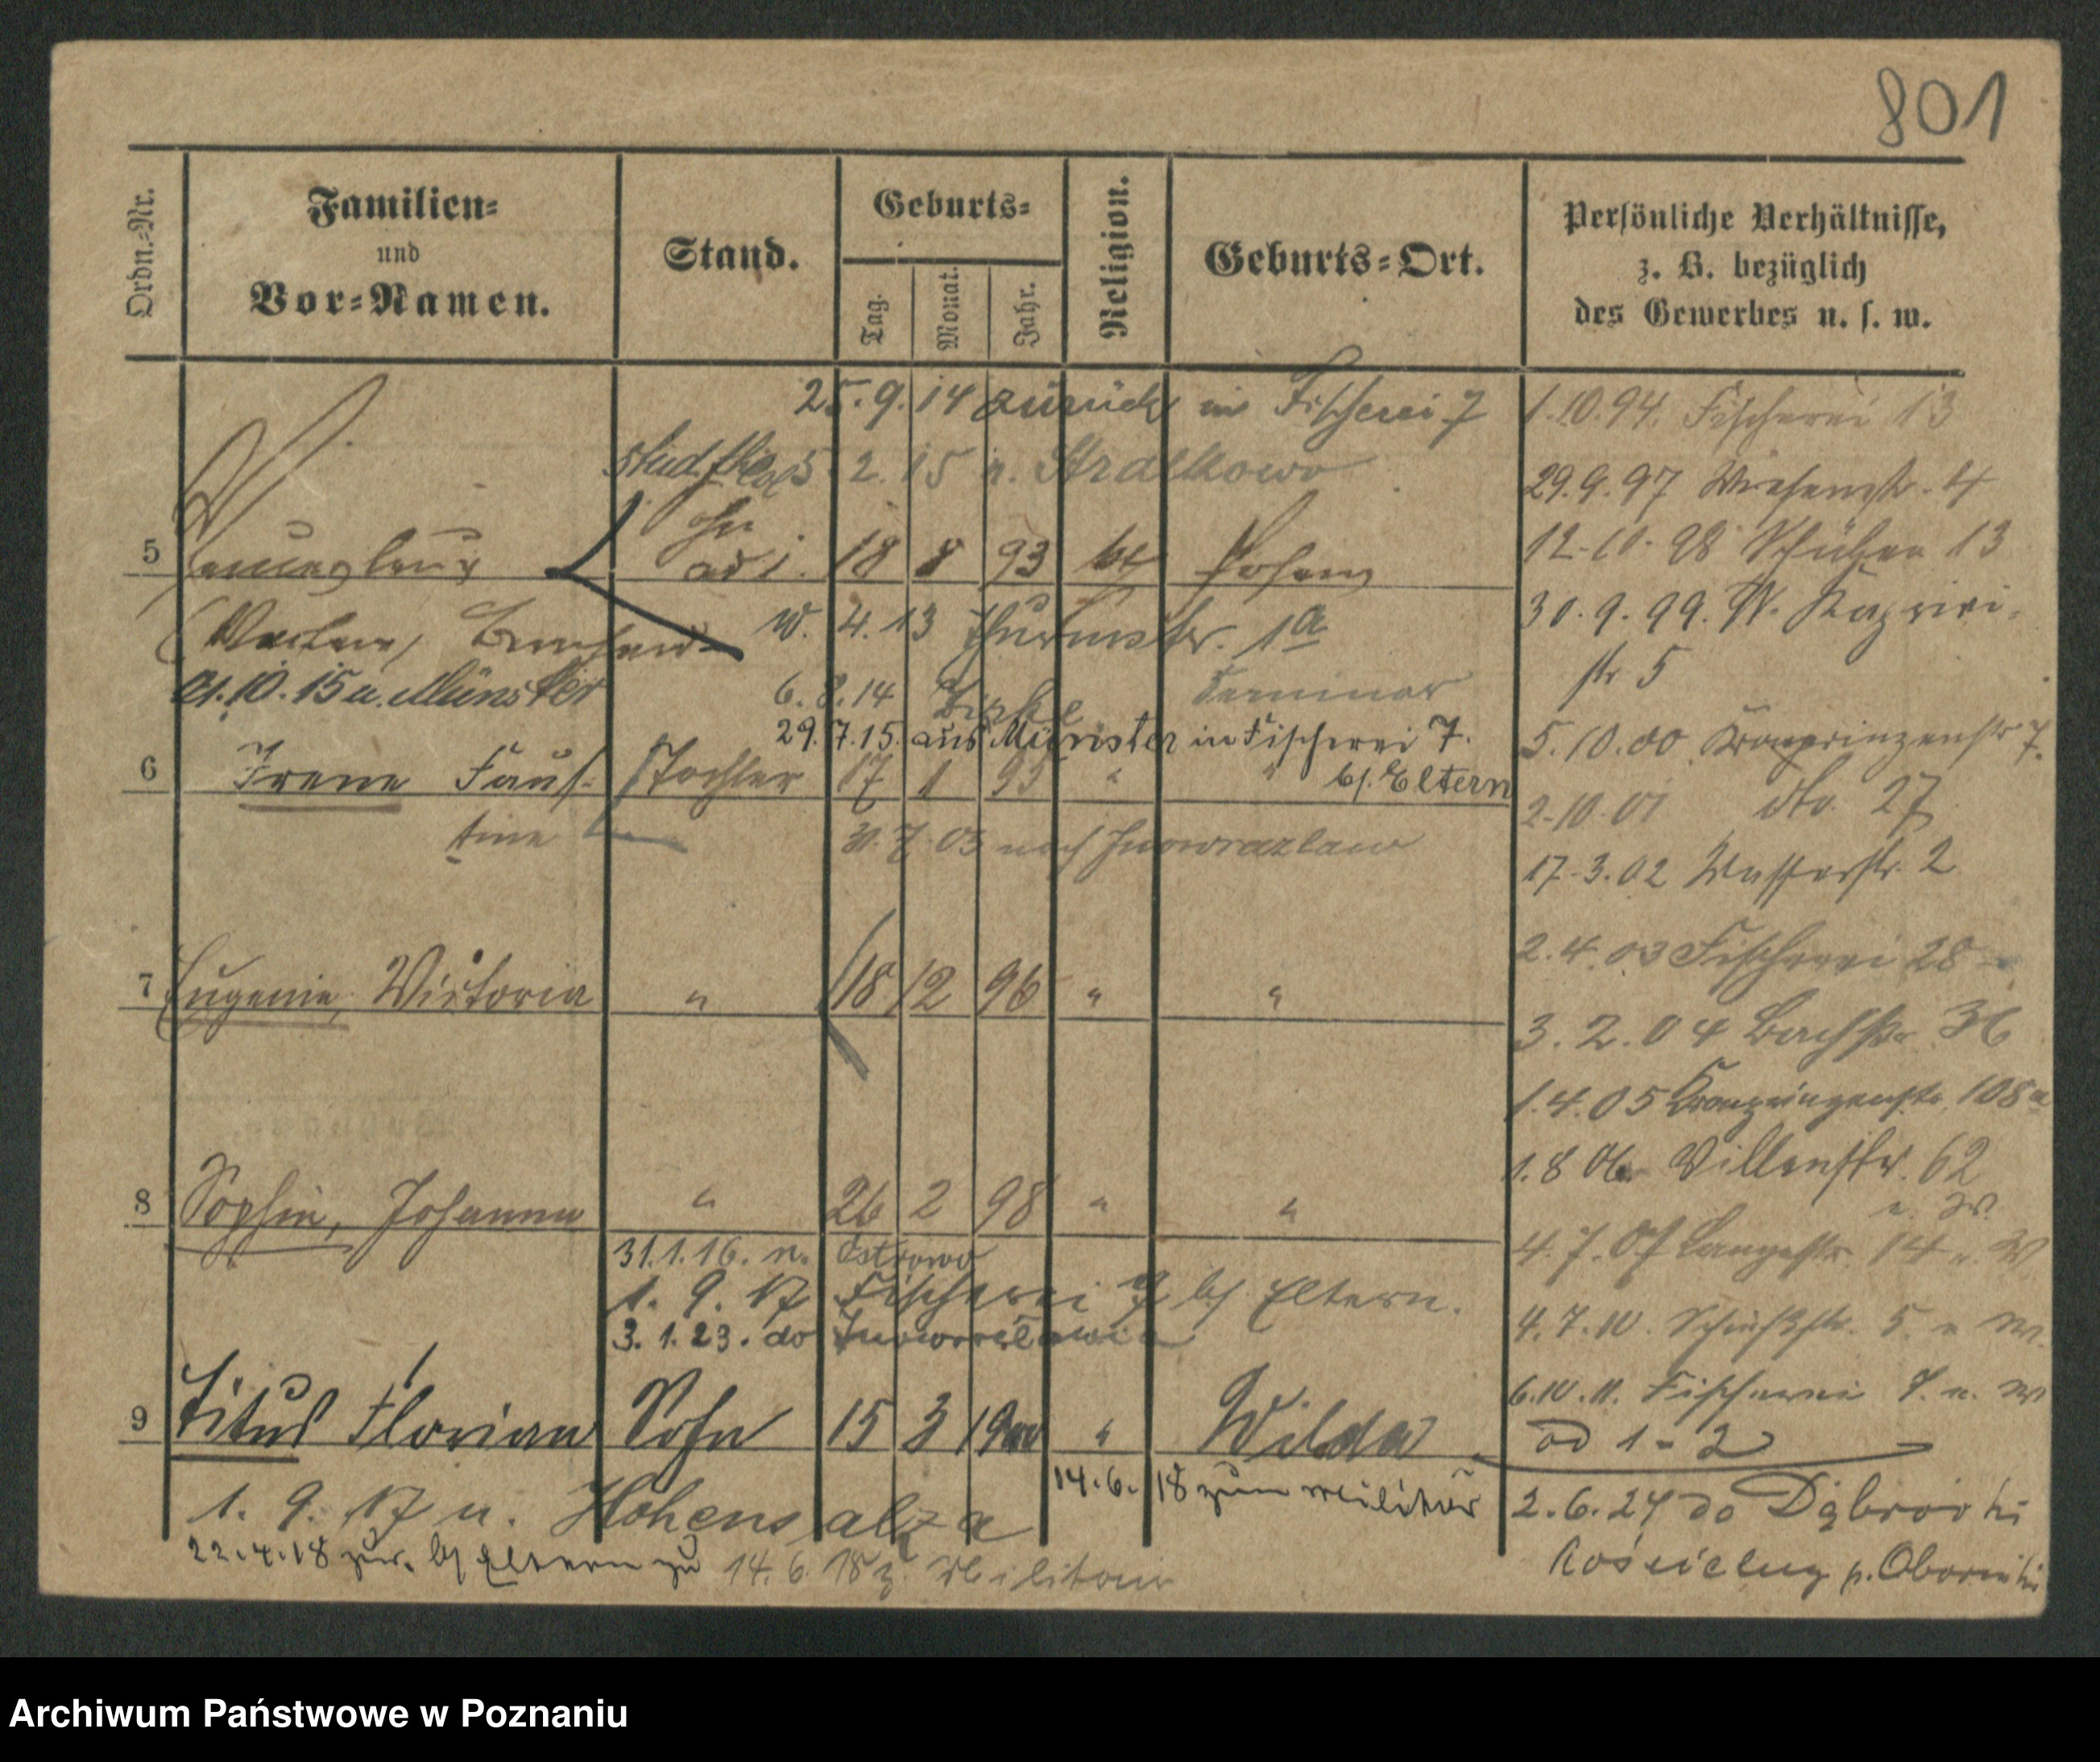 801
Ordn.-Nr.
Familien-
und
Vor-Namen.
Stand.
Geburts-
Tag.
Monat.
Jahr.
Religion.
Geburts-Ort.
Persönliche Verhältnisse,
z. B. bezüglich
des Gewerbes u. s. w.
25. 9. 14 zurück in Fischerei 7
stud. 5. 2. 15 n. Stralkowo
5
ad 1. 18 8 93 kt Posen
W. 4. 13 Thurmstr. 1a
01. 10. 15 a. Münster
6. 8. 14 Zirke Seminar
29. 7. 15. aus Münster in Fischerei 7.
b/. Eltern
6 Irene Faus- Tochter 17 1 95 " "
tine
31. 7. 03 nach Inowrazlaw
7 Eugenie, Victoria " 18 12 96 " "
8 Sophie, Johanna " 26 2 98 " "
31. 1. 16. n. Ostrowo
1. 9. 17 Fischerei 7 b/. Eltern.
3. 1. 23. do Inowrocławia
9 Titus Florian Sohn 15 3 1900 " Wilda
14. 6. 18 zum Militär
1. 9. 17 n. Hohensalza
22. 4. 18 zur. b/ Eltern zu 14. 6. 18 z. Militair
1. 10. 94. Fischerei 13
29. 9. 97 Wiesenstr. 4
12. 10. 98 Schützen 13
30. 9. 99. W. Kaprivi-
str 5
5. 10. 00 Kronprinzenstr 7.
2. 10. 01 dto. 27
17. 3. 02 Wasserstr. 2
2. 4. 03 Fischerei 28
3. 2. 04 Bachstr 36
1. 4. 05 Kronprinzenstr. 108a
1. 8. 06 Villenstr. 62
n. W.
4. 7. 07 Langestr. 14 n. W
4. 7. 10. Schießstr. 5. n W.
6. 10. 11. Fischerei 7. n. W
ad 1-2
2. 6. 24 do Dąbrówki
Kościelny p. Oborniki